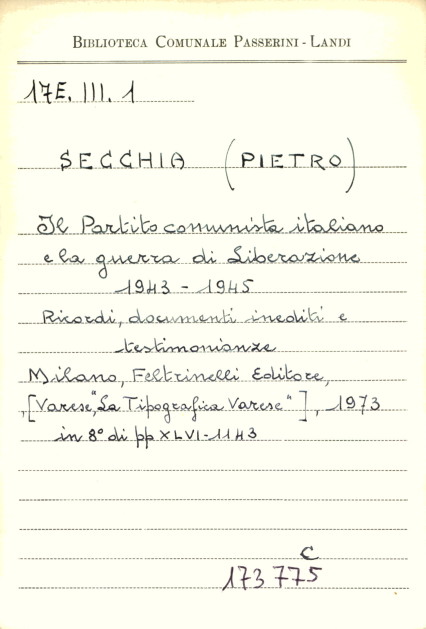 BIBLIOTECA COMUNALE PASSERINI - LANDI
17E. III. 1
SECCHIA (PIETRO)
Il Partito comunista italiano
e la guerra di Liberazione
1943 - 1945
Ricordi, documenti inediti e
testimonianze
Milano, Feltrinelli Editore,
,[Varese, "La Tipografica Varese"], 1973
in 8° di pp XLVI-1143
C
173775